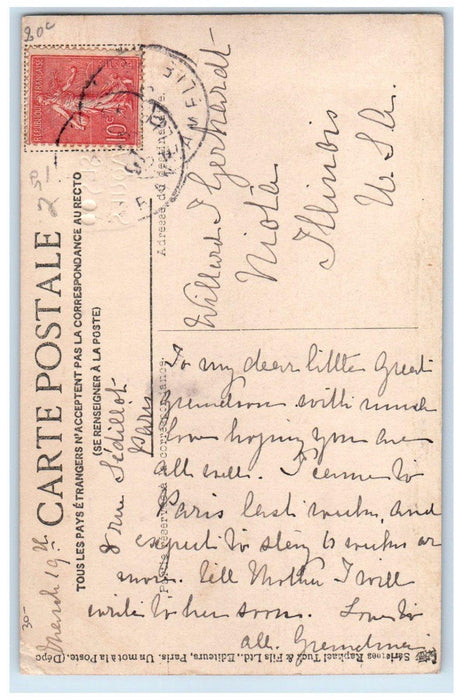 80c
2 50
30-
REPUBLIQUE FRANÇAISE
10c
CARTE POSTALE
TOUS LES PAYS ÉTRANGERS N'ACCEPTENT PAS LA CORRESPONDANCE AU RECTO
(SE RENSEIGNER À LA POSTE)
Adresse du destinataire.
Willard J Gerhardt
Niota
Illinois
U. S. A.
March 19th
8 rue Sédillot
Paris
To my dear little Great
grandson with much
love hoping you are
all well. I came to
Paris last week and
expect to stay 6 weeks or
more. Tell Mother I will
write to her soon. Love to
all. Grandma
Partie réservée à la correspondance.
Série 1ères Raphael Tuck & Fils Ltd., Editeurs, Paris. Un mot à la Poste. (Dépo